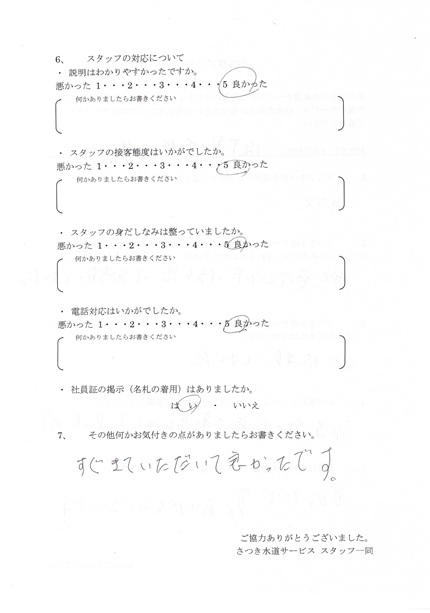 6、 スタッフの対応について
・ 説明はわかりやすかったですか。
悪かった 1・・・2・・・3・・・4・・・5 良かった
何かありましたらお書きください
・ スタッフの接客態度はいかがでしたか。
悪かった 1・・・2・・・3・・・4・・・5 良かった
何かありましたらお書きください
・ スタッフの身だしなみは整っていましたか。
悪かった 1・・・2・・・3・・・4・・・5 良かった
何かありましたらお書きください
・ 電話対応はいかがでしたか。
悪かった 1・・・2・・・3・・・4・・・5 良かった
何かありましたらお書きください
・ 社員証の掲示（名札の着用）はありましたか。
はい ・ いいえ
7、 その他何かお気付きの点がありましたらお書きください。
すぐきていただいて良かったです。
ご協力ありがとうございました。
さつき水道サービス スタッフ一同